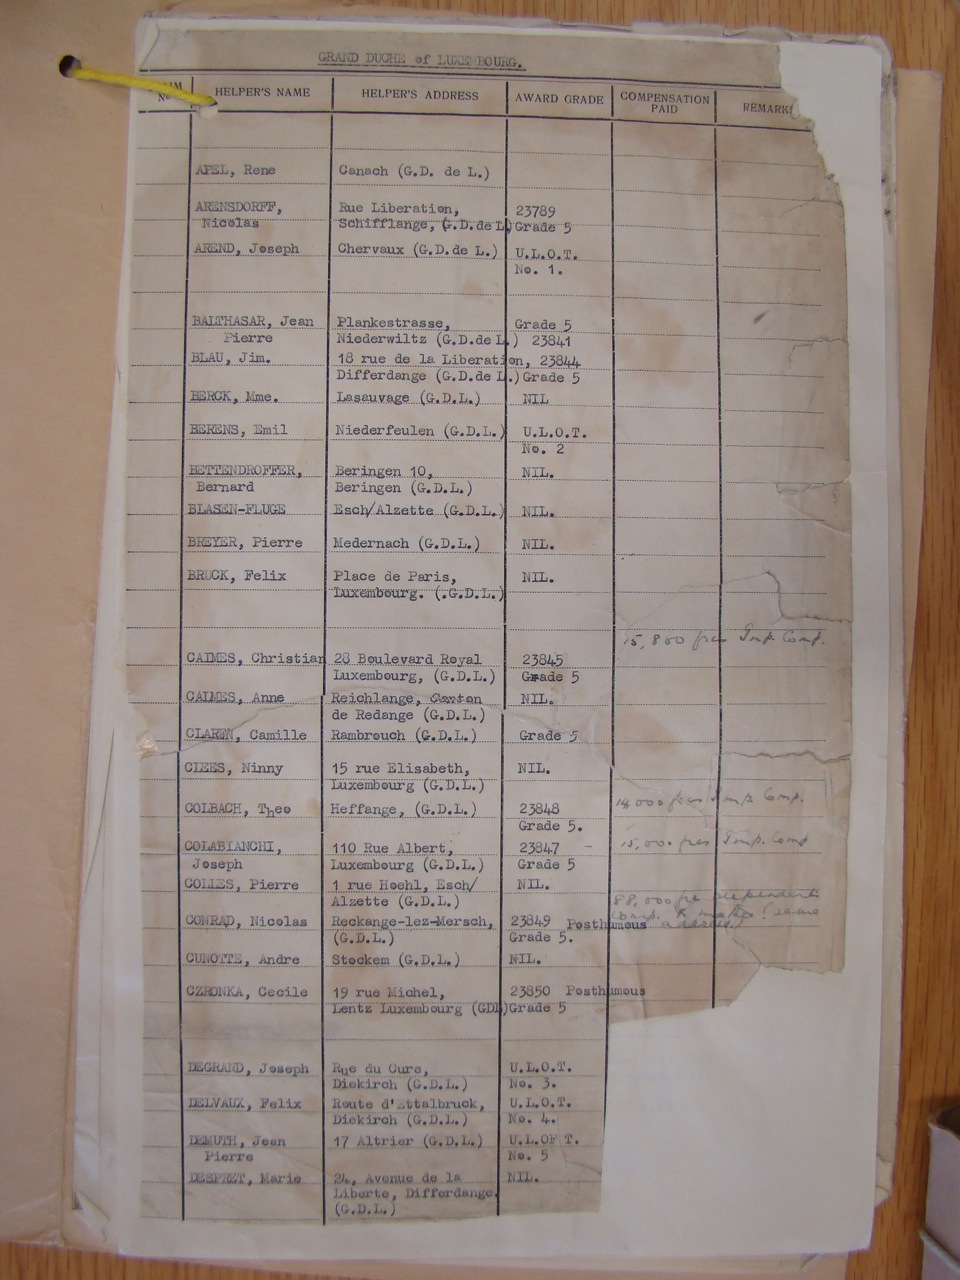 GRAND DUCHE of LUXEMBOURG.
HELPER'S NAME HELPER'S ADDRESS AWARD GRADE COMPENSATION PAID REMARKS
APEL, Rene Canach (G.D. de L.)
ARENSDORFF, Rue Liberation, 23789
Nicolas Schifflange, (G.D.de L) Grade 5
AREND, Joseph Chervaux (G.D.de L.) U.L.O.T.
No. 1.
BALTHASAR, Jean Plankestrasse, Grade 5
Pierre Niederwiltz (G.D.de L.) 23841
BLAU, Jim. 18 rue de la Liberation, 23844
Differdange (G.D.de L.) Grade 5
BERCK, Mme. Lasauvage (G.D.L.) NIL
BERENS, Emil Niederfeulen (G.D.L.) U.L.O.T.
No. 2
BETTENDROFFER, Beringen 10, NIL.
Bernard Beringen (G.D.L.)
BLASEN-FLUGE Esch/Alzette (G.D.L.) NIL.
BREYER, Pierre Medernach (G.D.L.) NIL.
BRUCK, Felix Place de Paris, NIL.
Luxembourg. (.G.D.L.)
15,800 frcs Imp. Comp.
CAIMES, Christian 28 Boulevard Royal 23845
Luxembourg, (G.D.L.) Grade 5
CAIMES, Anne Reichlange, Canton NIL.
de Redange (G.D.L.)
CLAREN, Camille Rambrouch (G.D.L.) Grade 5
CLEES, Ninny 15 rue Elisabeth, NIL.
Luxembourg (G.D.L.)
COLBACH, Theo Heffange, (G.D.L.) 23848 14,000 frcs Imp. Comp.
Grade 5.
COLABIANCHI, 110 Rue Albert, 23847 - 15,000 frcs Imp. Comp
Joseph Luxembourg (G.D.L.) Grade 5
COLLES, Pierre 1 rue Hoehl, Esch/ NIL.
Alzette (G.D.L.) 88,000 frs dependents
CONRAD, Nicolas Reckange-lez-Mersch, 23849 Posthumous comp. to mother. same address)
(G.D.L.) Grade 5.
CUNOTTE, Andre Stockem (G.D.L.) NIL.
CZRONKA, Cecile 19 rue Michel, 23850 Posthumous
Lentz Luxembourg (GDL) Grade 5
DEGRAND, Joseph Rue du Cure, U.L.O.T.
Diekirch (G.D.L.) No. 3.
DELVAUX, Felix Route d'Ettalbruck, U.L.O.T.
Diekirch (G.D.L.) No. 4.
DEMUTH, Jean 17 Altrier (G.D.L.) U.L.OF T.
Pierre No. 5
DESPRET, Marie 24, Avenue de la NIL.
Liberte, Differdange.
(G.D.L.)